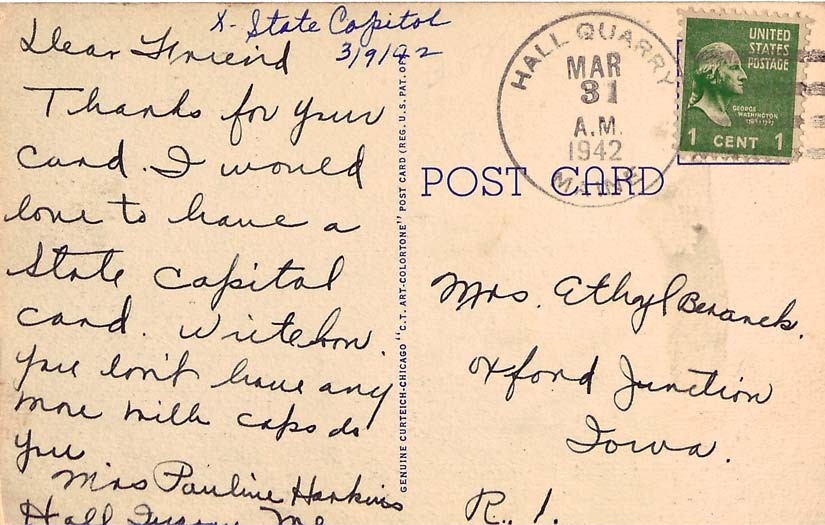 X- State Capitol
3/9/42
Dear Friend
Thanks for your
card. I would
love to have a
State Capital
card. Write soon.
you don't have any
more milk caps do
you
Mrs Pauline Harkins
Hall Quarry Me
GENUINE CURTEICH-CHICAGO "C.T. ART-COLORTONE" POST CARD (REG. U.S. PAT. OF
HALL QUARRY
MAR
31
A.M.
1942
MAINE
UNITED
STATES
POSTAGE
GEORGE
WASHINGTON
1789-1797
1 CENT 1
POST CARD
Mrs. Ethyl Beranek.
Oxford Junction
Iowa.
R. 1.